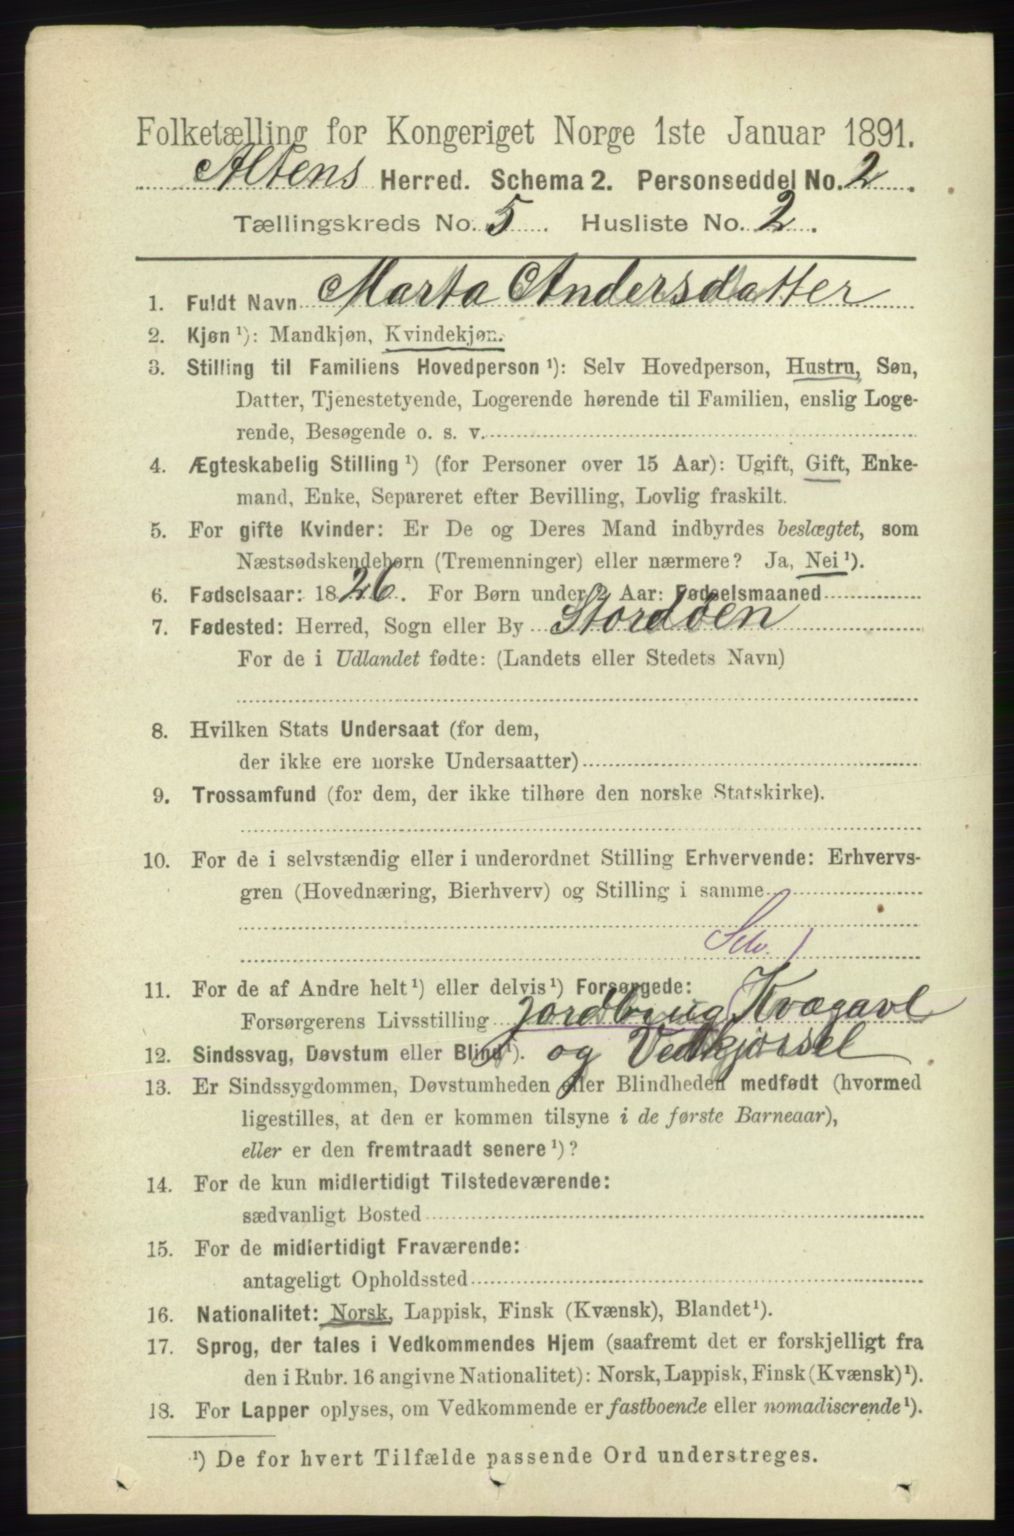 Folketælling for Kongeriget Norge 1ste Januar 1891.
Altens Herred. Schema 2. Personseddel No. 2.
Tællingskreds No. 5. Husliste No. 2.
1. Fuldt Navn Marta Andersdatter
2. Kjøn ¹): Mandkjøn, Kvindekjøn.
3. Stilling til Familiens Hovedperson ¹): Selv Hovedperson, Hustru, Søn,
Datter, Tjenestetyende, Logerende hørende til Familien, enslig Loge-
rende, Besøgende o. s. v.
4. Ægteskabelig Stilling ¹) (for Personer over 15 Aar): Ugift, Gift, Enke-
mand, Enke, Separeret efter Bevilling, Lovlig fraskilt.
5. For gifte Kvinder: Er De og Deres Mand indbyrdes beslægtet, som
Næstsødskendebørn (Tremenninger) eller nærmere? Ja, Nei ¹).
6. Fødselsaar: 1826. For Børn under 2 Aar: Fødselsmaaned
7. Fødested: Herred, Sogn eller By Stordøen
For de i Udlandet fødte: (Landets eller Stedets Navn)
8. Hvilken Stats Undersaat (for dem,
der ikke ere norske Undersaatter)
9. Trossamfund (for dem, der ikke tilhøre den norske Statskirke).
10. For de i selvstændig eller i underordnet Stilling Erhvervende: Erhvervs-
gren (Hovednæring, Bierhverv) og Stilling i samme
Selv.
11. For de af Andre helt ¹) eller delvis ¹) Forsørgede:
Forsørgerens Livsstilling jordbrug Kvægavl
12. Sindssvag, Døvstum eller Blind ¹). og Vedkjørsel
13. Er Sindssygdommen, Døvstumheden eller Blindheden medfødt (hvormed
ligestilles, at den er kommen tilsyne i de første Barneaar),
eller er den fremtraadt senere ¹)?
14. For de kun midlertidigt Tilstedeværende:
sædvanligt Bosted
15. For de midlertidigt Fraværende:
antageligt Opholdssted
16. Nationalitet: Norsk, Lappisk, Finsk (Kvænsk), Blandet ¹).
17. Sprog, der tales i Vedkommendes Hjem (saafremt det er forskjelligt fra
den i Rubr. 16 angivne Nationalitet): Norsk, Lappisk, Finsk (Kvænsk) ¹).
18. For Lapper oplyses, om Vedkommende er fastboende eller nomadiserende ¹).
¹) De for hvert Tilfælde passende Ord understreges.